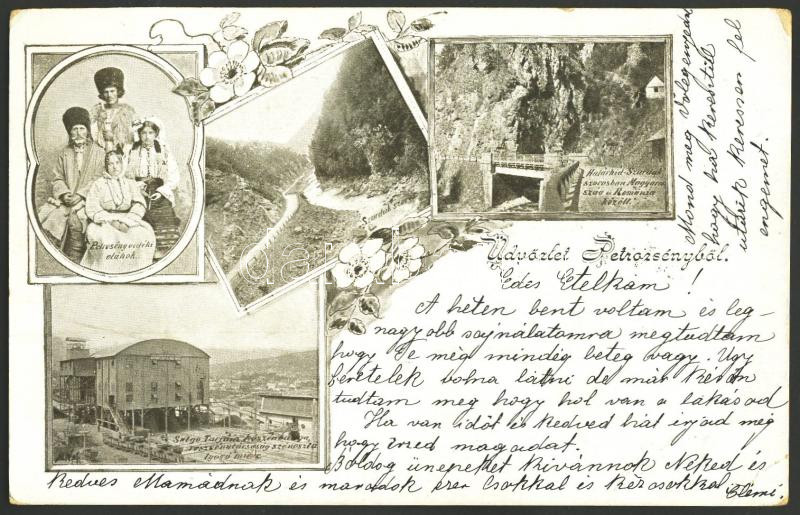 Petrosényvidéki
oláhok.
Szurduk-szoros
Határhid-Szurduk
szorosban Magyaror
szág és Románia
között.
Salgó Tarjáni kőszénbánya
részvénytársaság szénosztá
lyozó műve.
Üdvözlet Petrozsényből.
Édes Etelkám!
A héten bent voltam és leg-
nagyobb sajnálatomra megtudtam
hogy Te még mindég beteg vagy. Ugy
szeretelek volna látni de már későn
tudtam meg hogy hol van a lakásod
Ha van időd és kedved hát irjad még
hogy érzed magadat.
Boldog ünepeket kivánnok Neked és
kedves Mamádnak és maradok ezer Csókkal és kézcsókkal
Clémi.
Mond meg Volegenyeán
hogy ha keresztül
utazik keressen fel
engemet.